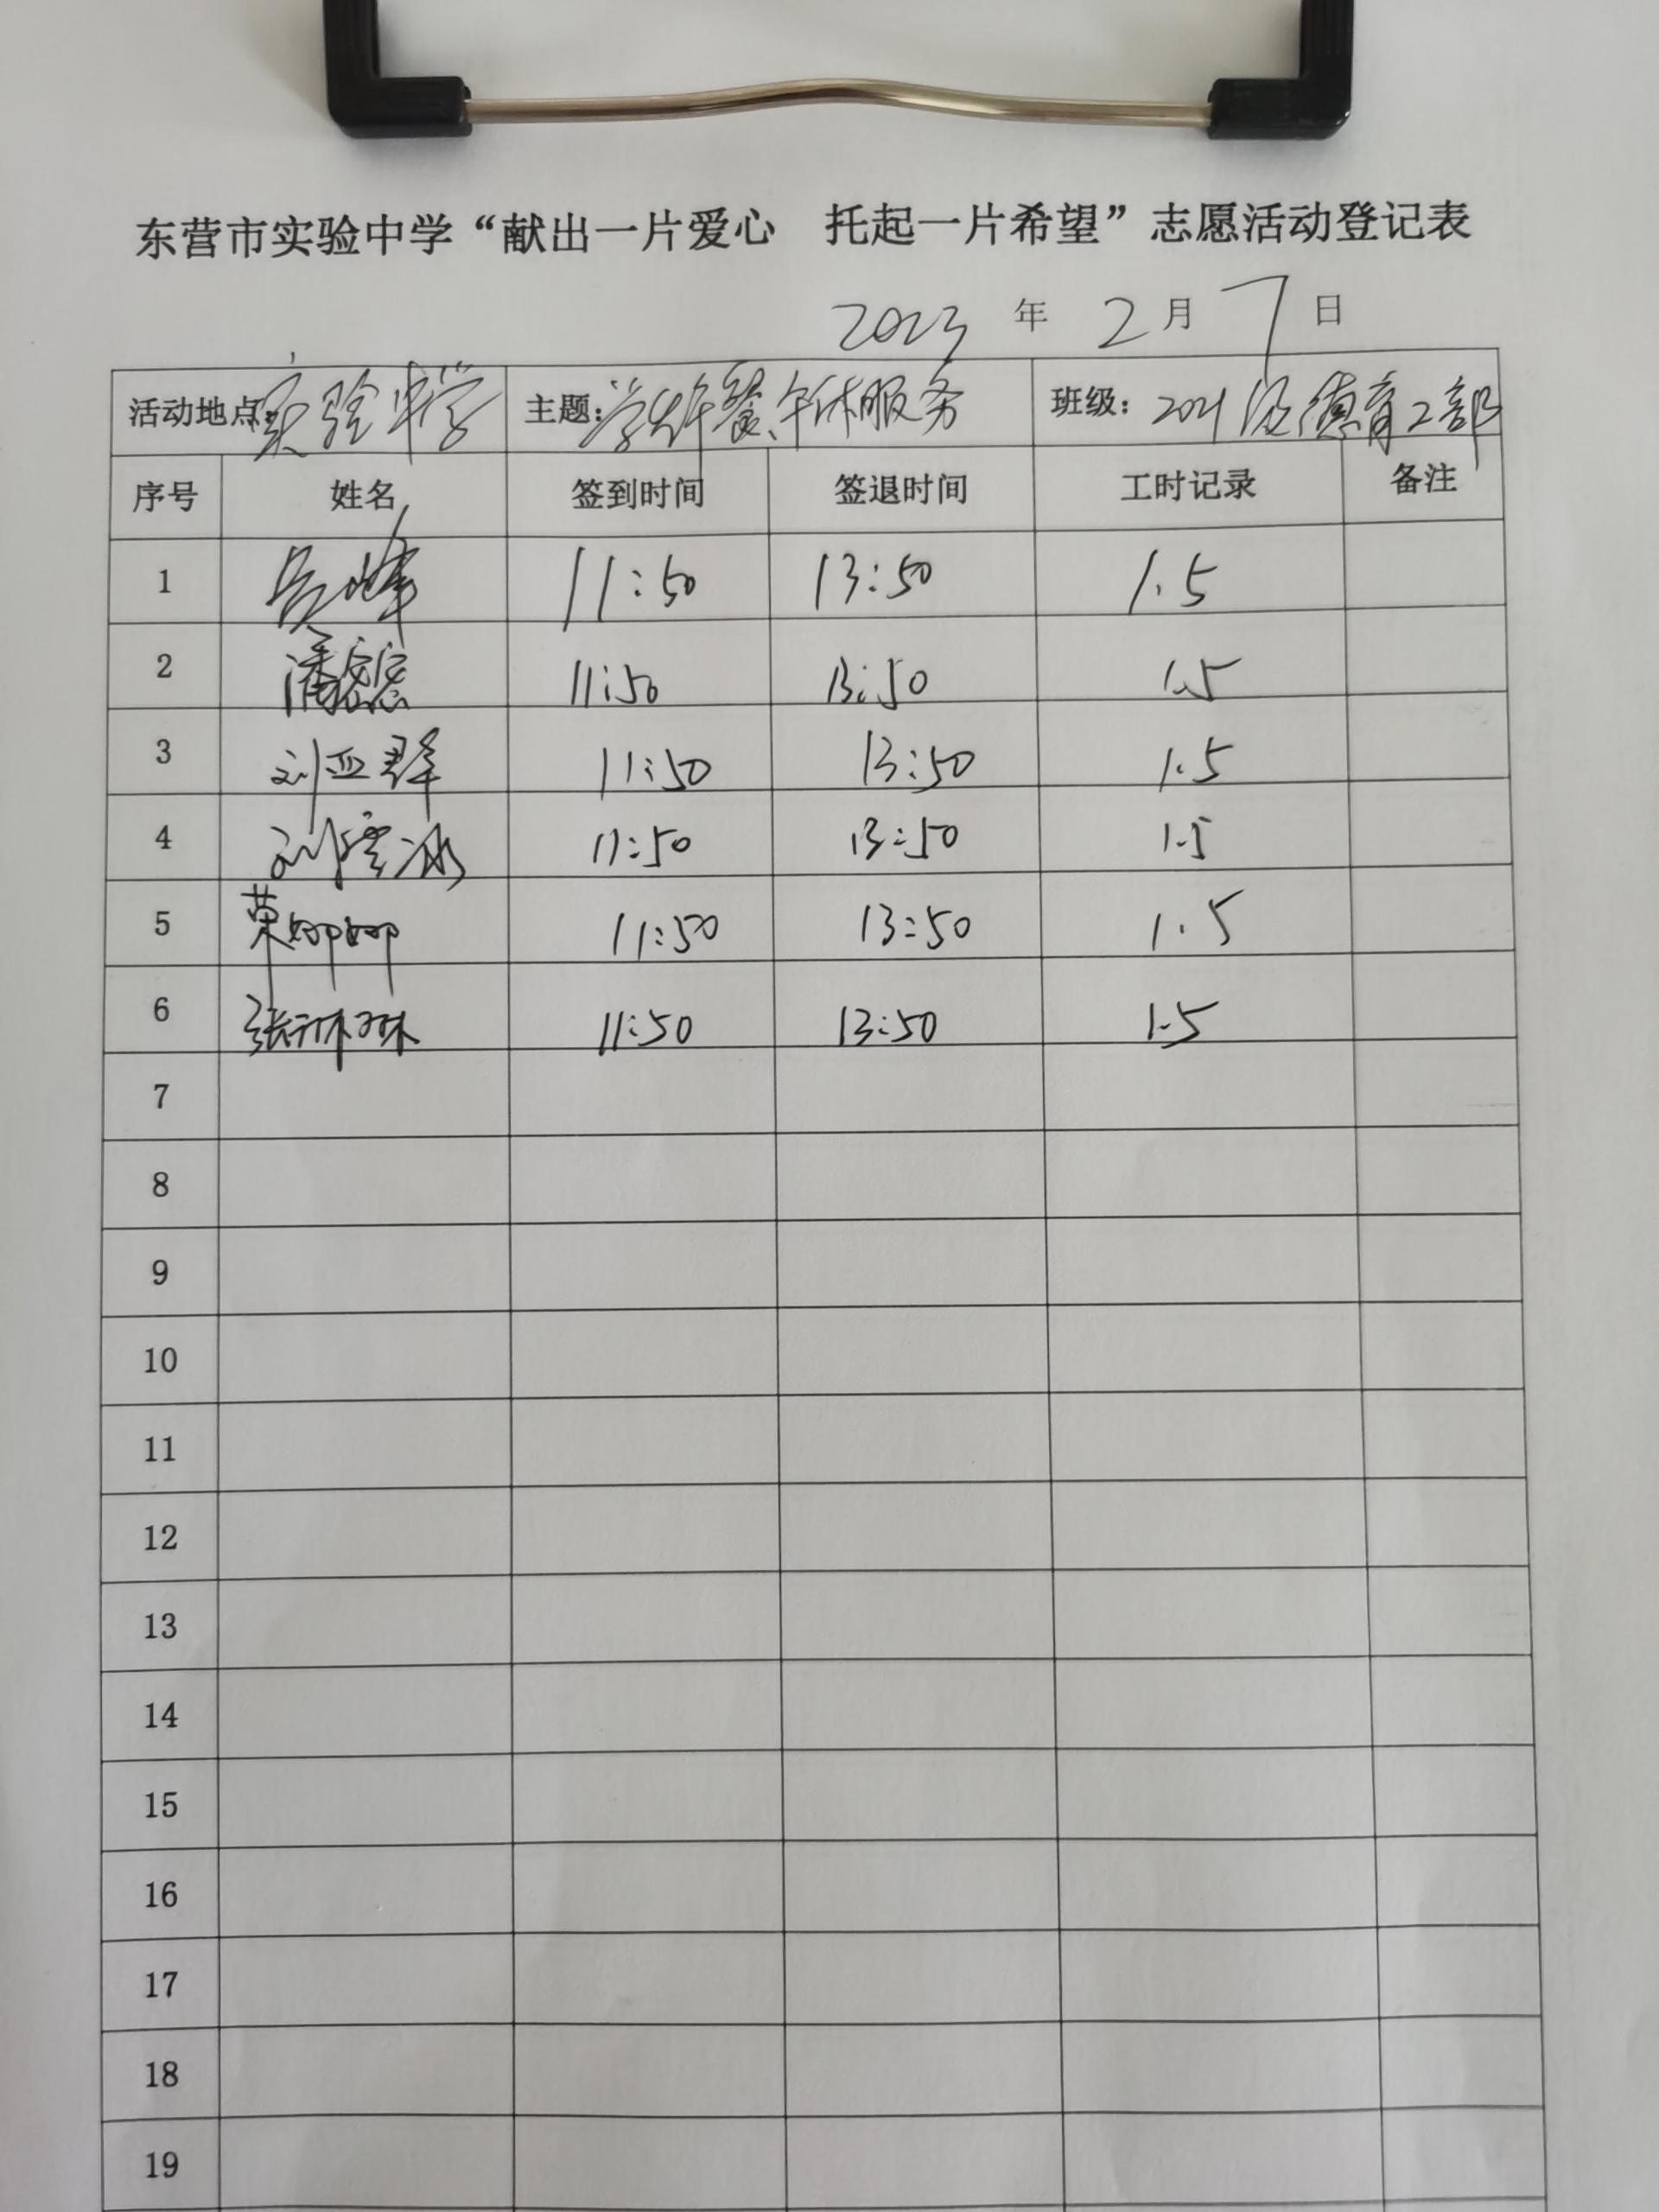 东营市实验中学“献出一片爱心 托起一片希望”志愿活动登记表
2023 年 2 月 7 日
活动地点：实验中学 主题：学生午餐、午休服务 班级：2021级德育工部
序号 姓名 签到时间 签退时间 工时记录 备注
1 吴峰 11:50 13:50 1.5
2 潘 11:50 13:50 1.5
3 刘亚群 11:50 13:50 1.5
4 刘雪冰 11:50 13:50 1.5
5 荣娜娜 11:50 13:50 1.5
6 张琳琳 11:50 13:50 1.5
7
8
9
10
11
12
13
14
15
16
17
18
19